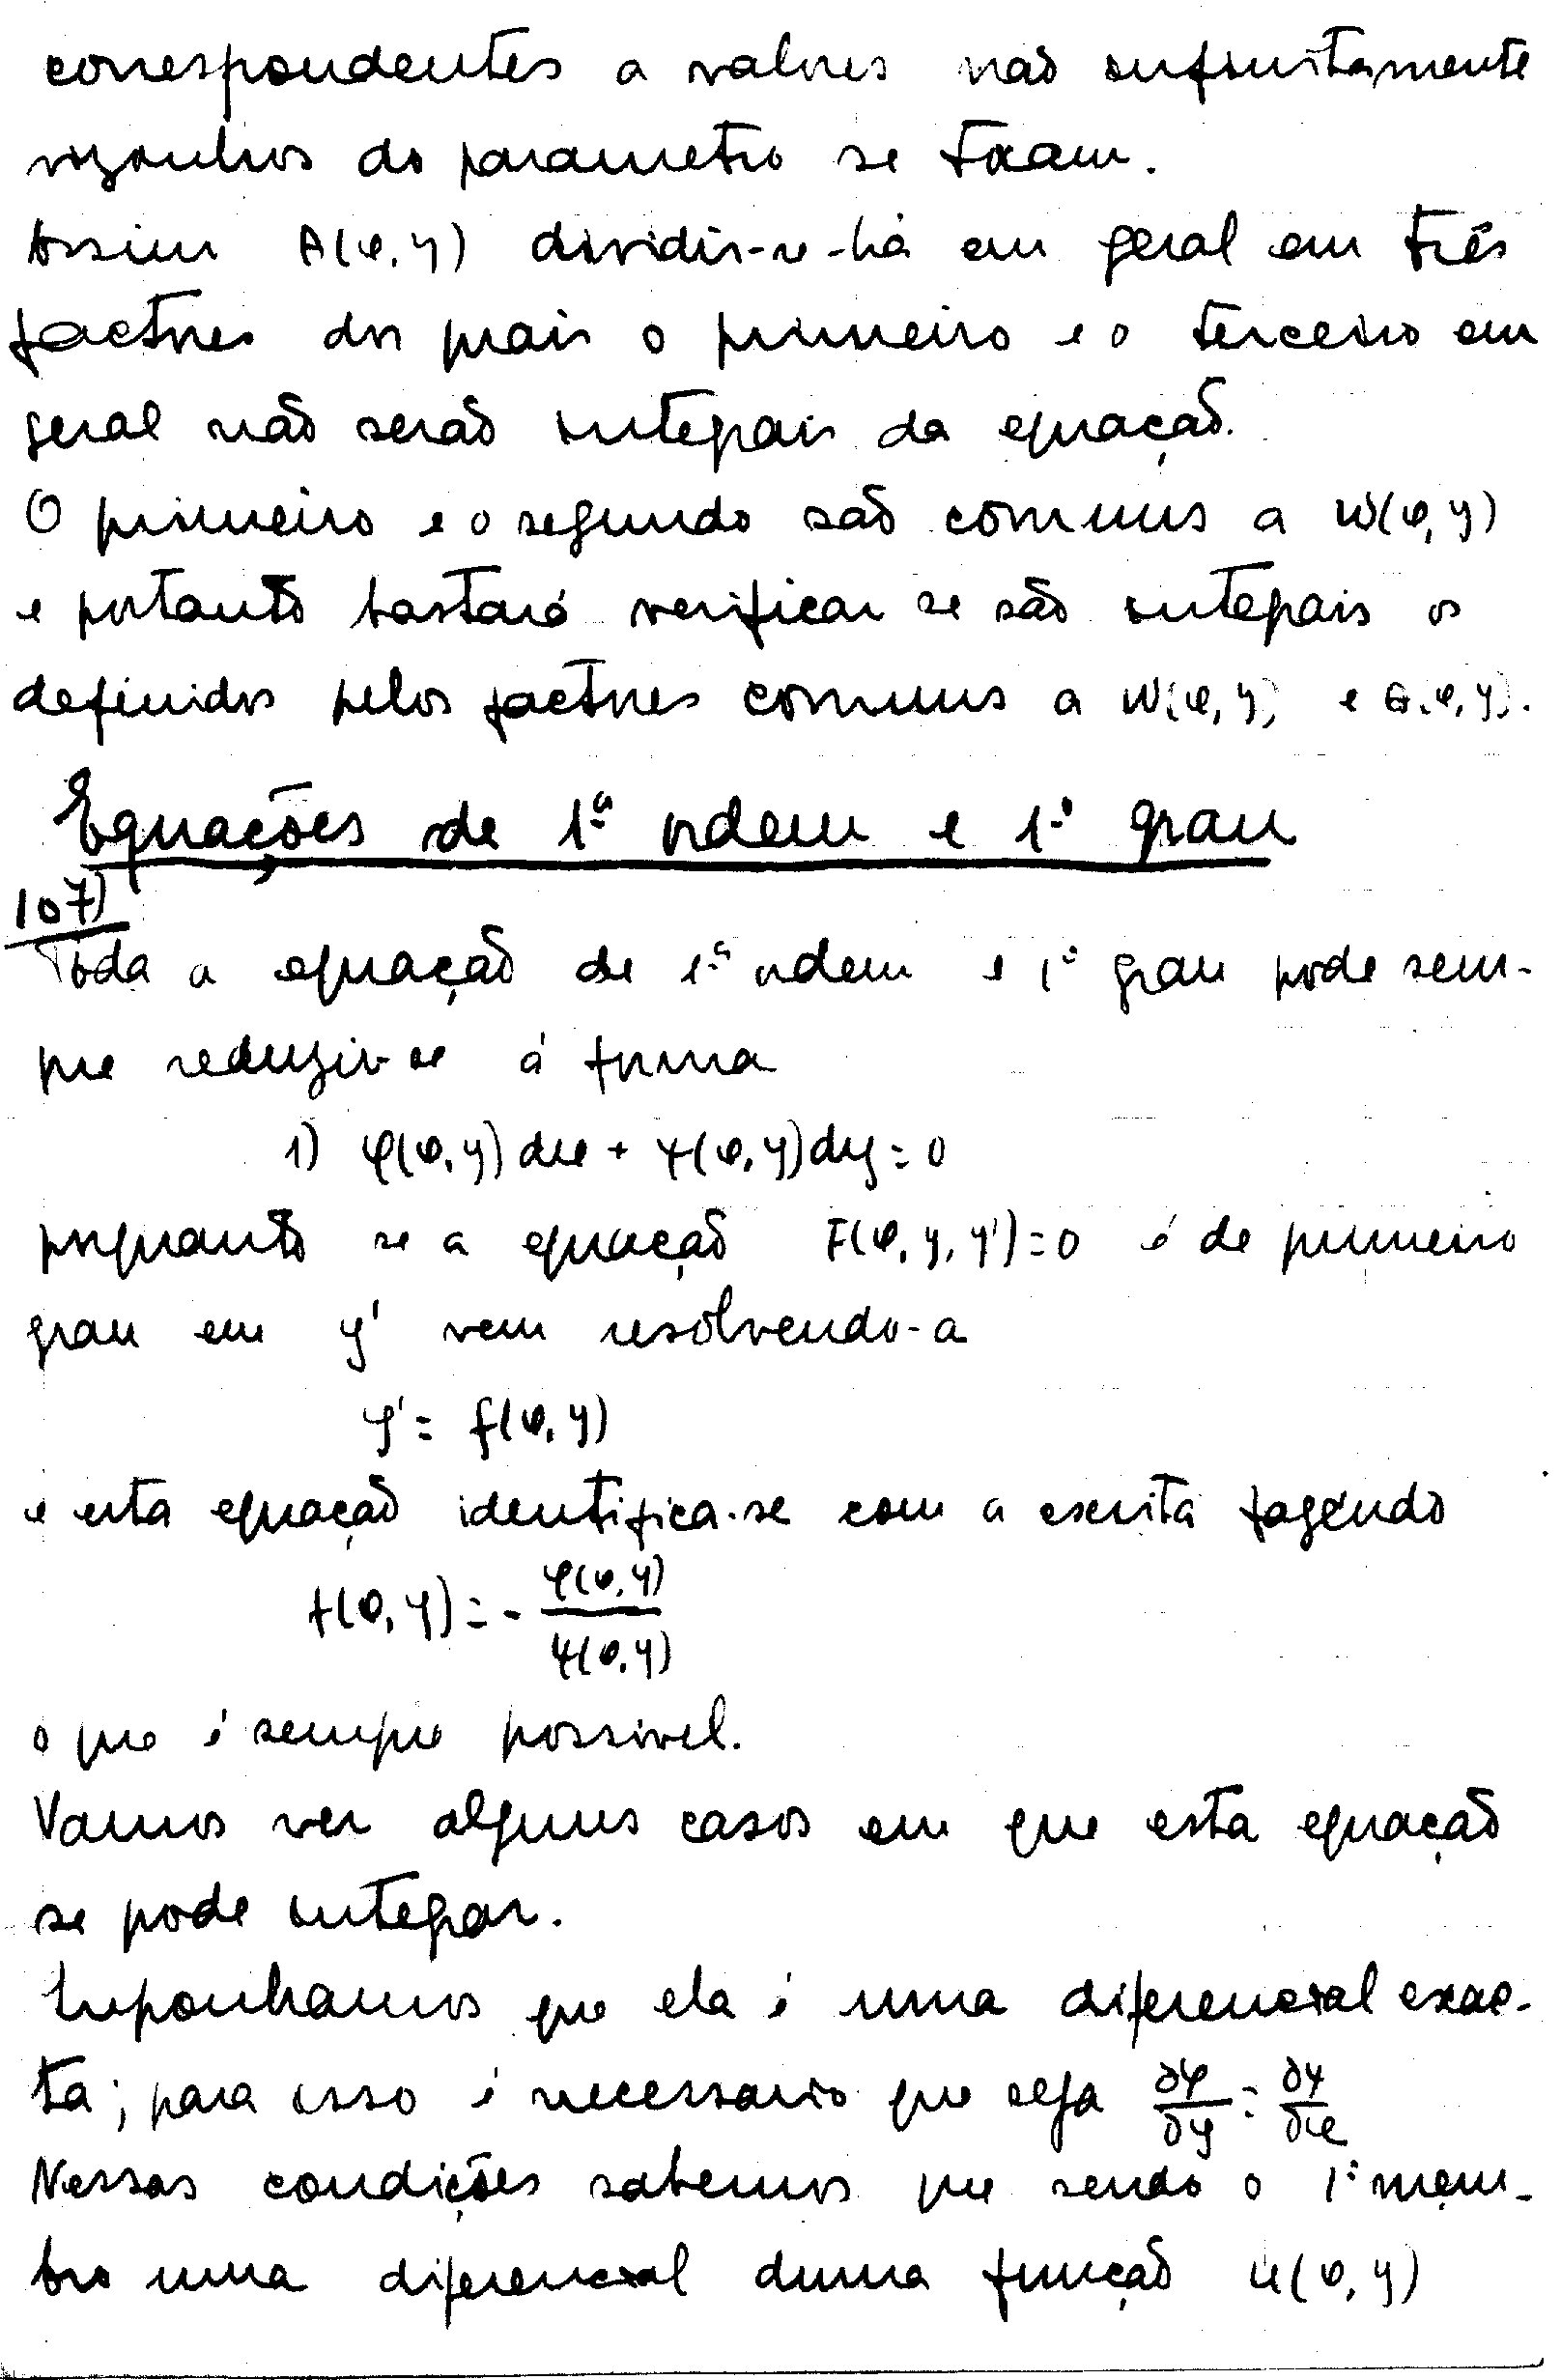 correspondentes a valores não infinitamente
vizinhos do parametro se tocam.
Assim A(x,y) dividir-se-há em geral em três
factores dos quais o primeiro e o terceiro em
geral não serão integrais da equação.
O primeiro e o segundo são comuns a W(x,y)
e portanto bastará verificar se são integais os
definidos pelos factores comuns a W(x,y) e Θ(x,y).
Equações de 1ª ordem e 1º grau
107)
Toda a equação de 1ª ordem e 1º grau pode sem-
pre reduzir-se á forma
1) φ(x,y)dx + ψ(x,y)dy = 0
porquanto se a equação F(x,y,y') = 0 é de primeiro
grau em y' vem resolvendo-a
y' = f(x,y)
e esta equação identifica-se com a escrita fazendo
f(x,y) = - φ(x,y)/ψ(x,y)
o que é sempre possivel.
Vamos ver alguns casos em que esta equação
se pode integrar.
Suponhamos que ela é uma diferencial exac-
ta; para isso é necessario que seja ∂φ/∂y = ∂ψ/∂x
Nessas condições sabemos que sendo o 1º mem-
bro uma diferencial duma função u(x,y)